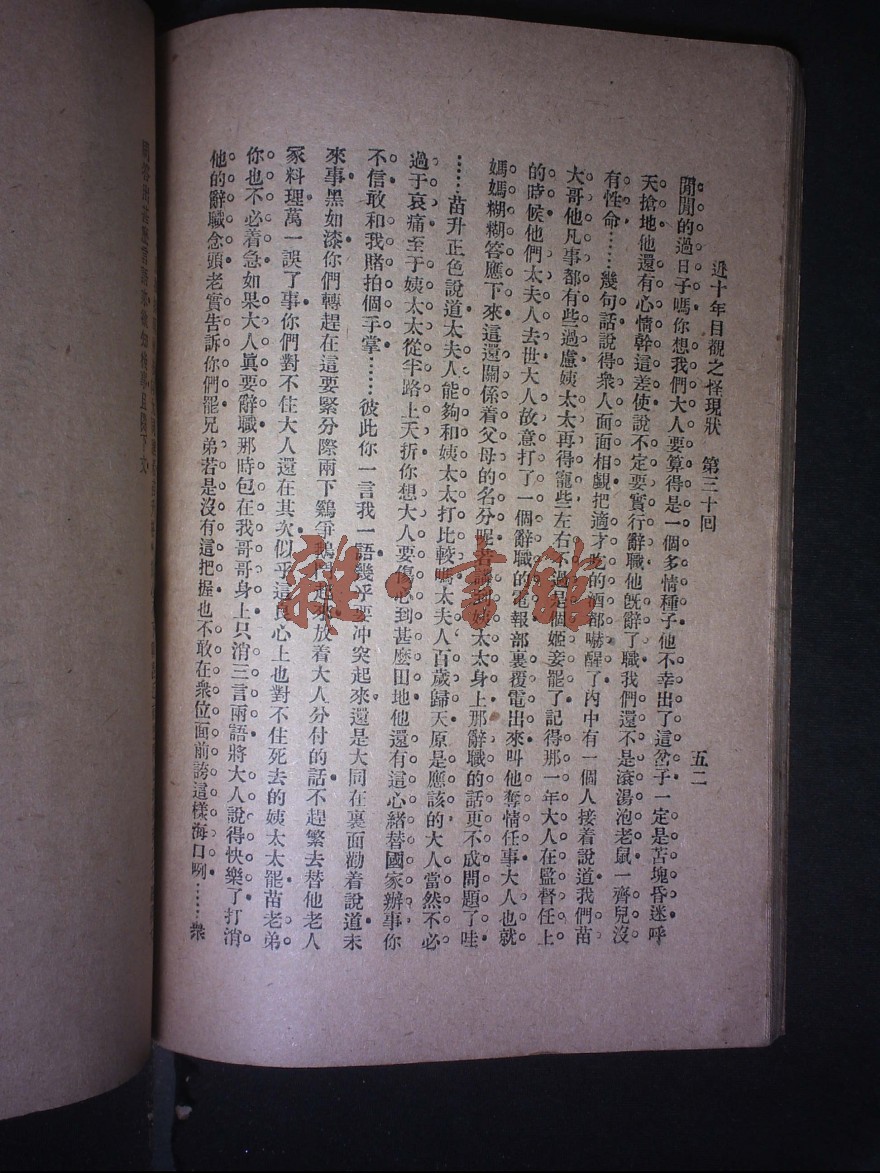 近十年目覩之怪現狀　第三十回　五二
閙閙的過日子嗎你想我們大人要算得是一個多情種子他不幸出了這岔子一定是苫塊昏迷呼
天搶地他還有心情幹這差使說不定要實行辭職他旣辭了職我們還不是滾湯泡老鼠一齊兒沒
有性命……幾句話說得衆人面面相覷把適才吃的酒都嚇醒了內中有一個人接着說道我們苗
大哥他凡事都有些過慮姨太太再得寵些左右不過是個姬妾罷了記得那一年大人在監督任上
的時候他們太夫人去世大人故意打了一個辭職的電報部裏覆電出來叫他奪情任事大人也就
媽媽糊糊答應下來這還關係着父母的名分呢若論到姨太太身上那辭職的話更不成問題了哇
……苗升正色說道太夫人能夠和姨太太打比較嗎太夫人百歲歸天原是應該的大人當然不必
過于哀痛至于姨太太從半路上夭折你想大人要傷心到甚麼田地他還有這心緒替國家辦事你
不信敢和我賭拍個手掌……彼此你一言我一語幾乎要冲突起來還是大同在裏面勸着說道未
來事黑如漆你們轉趕在這要緊分際兩下鷄爭鵝鬥起來放着大人分付的話不趕緊去替他老人
家料理萬一誤了事你們對不住大人還在其次似乎這良心上也對不住死去的姨太太罷苗老弟
你也不必着急如果大人眞要辭職那時包在我哥哥身上只消三言兩語將大人說得快樂了打消
他的辭職念頭老實告訴你們罷兄弟若是沒有這把握也不敢在衆位面前誇這樣海口咧……衆
雜·書館